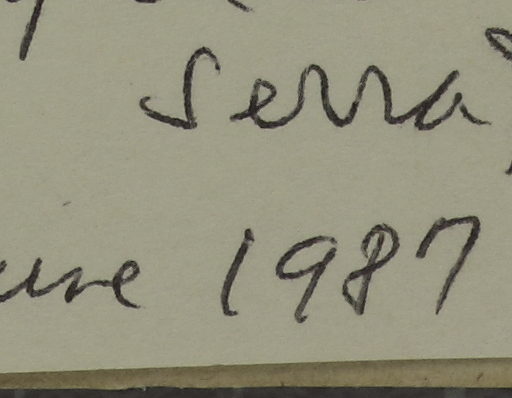 Serra
une 1987